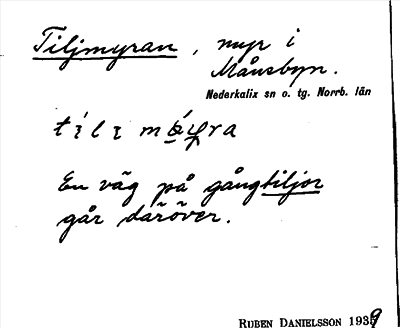 Tiljmyran, myr i
Månsbyn.
Nederkalix sn o. tg. Norrb. län
En väg på gångtiljor
går däröver.
RUBEN DANIELSSON 1939